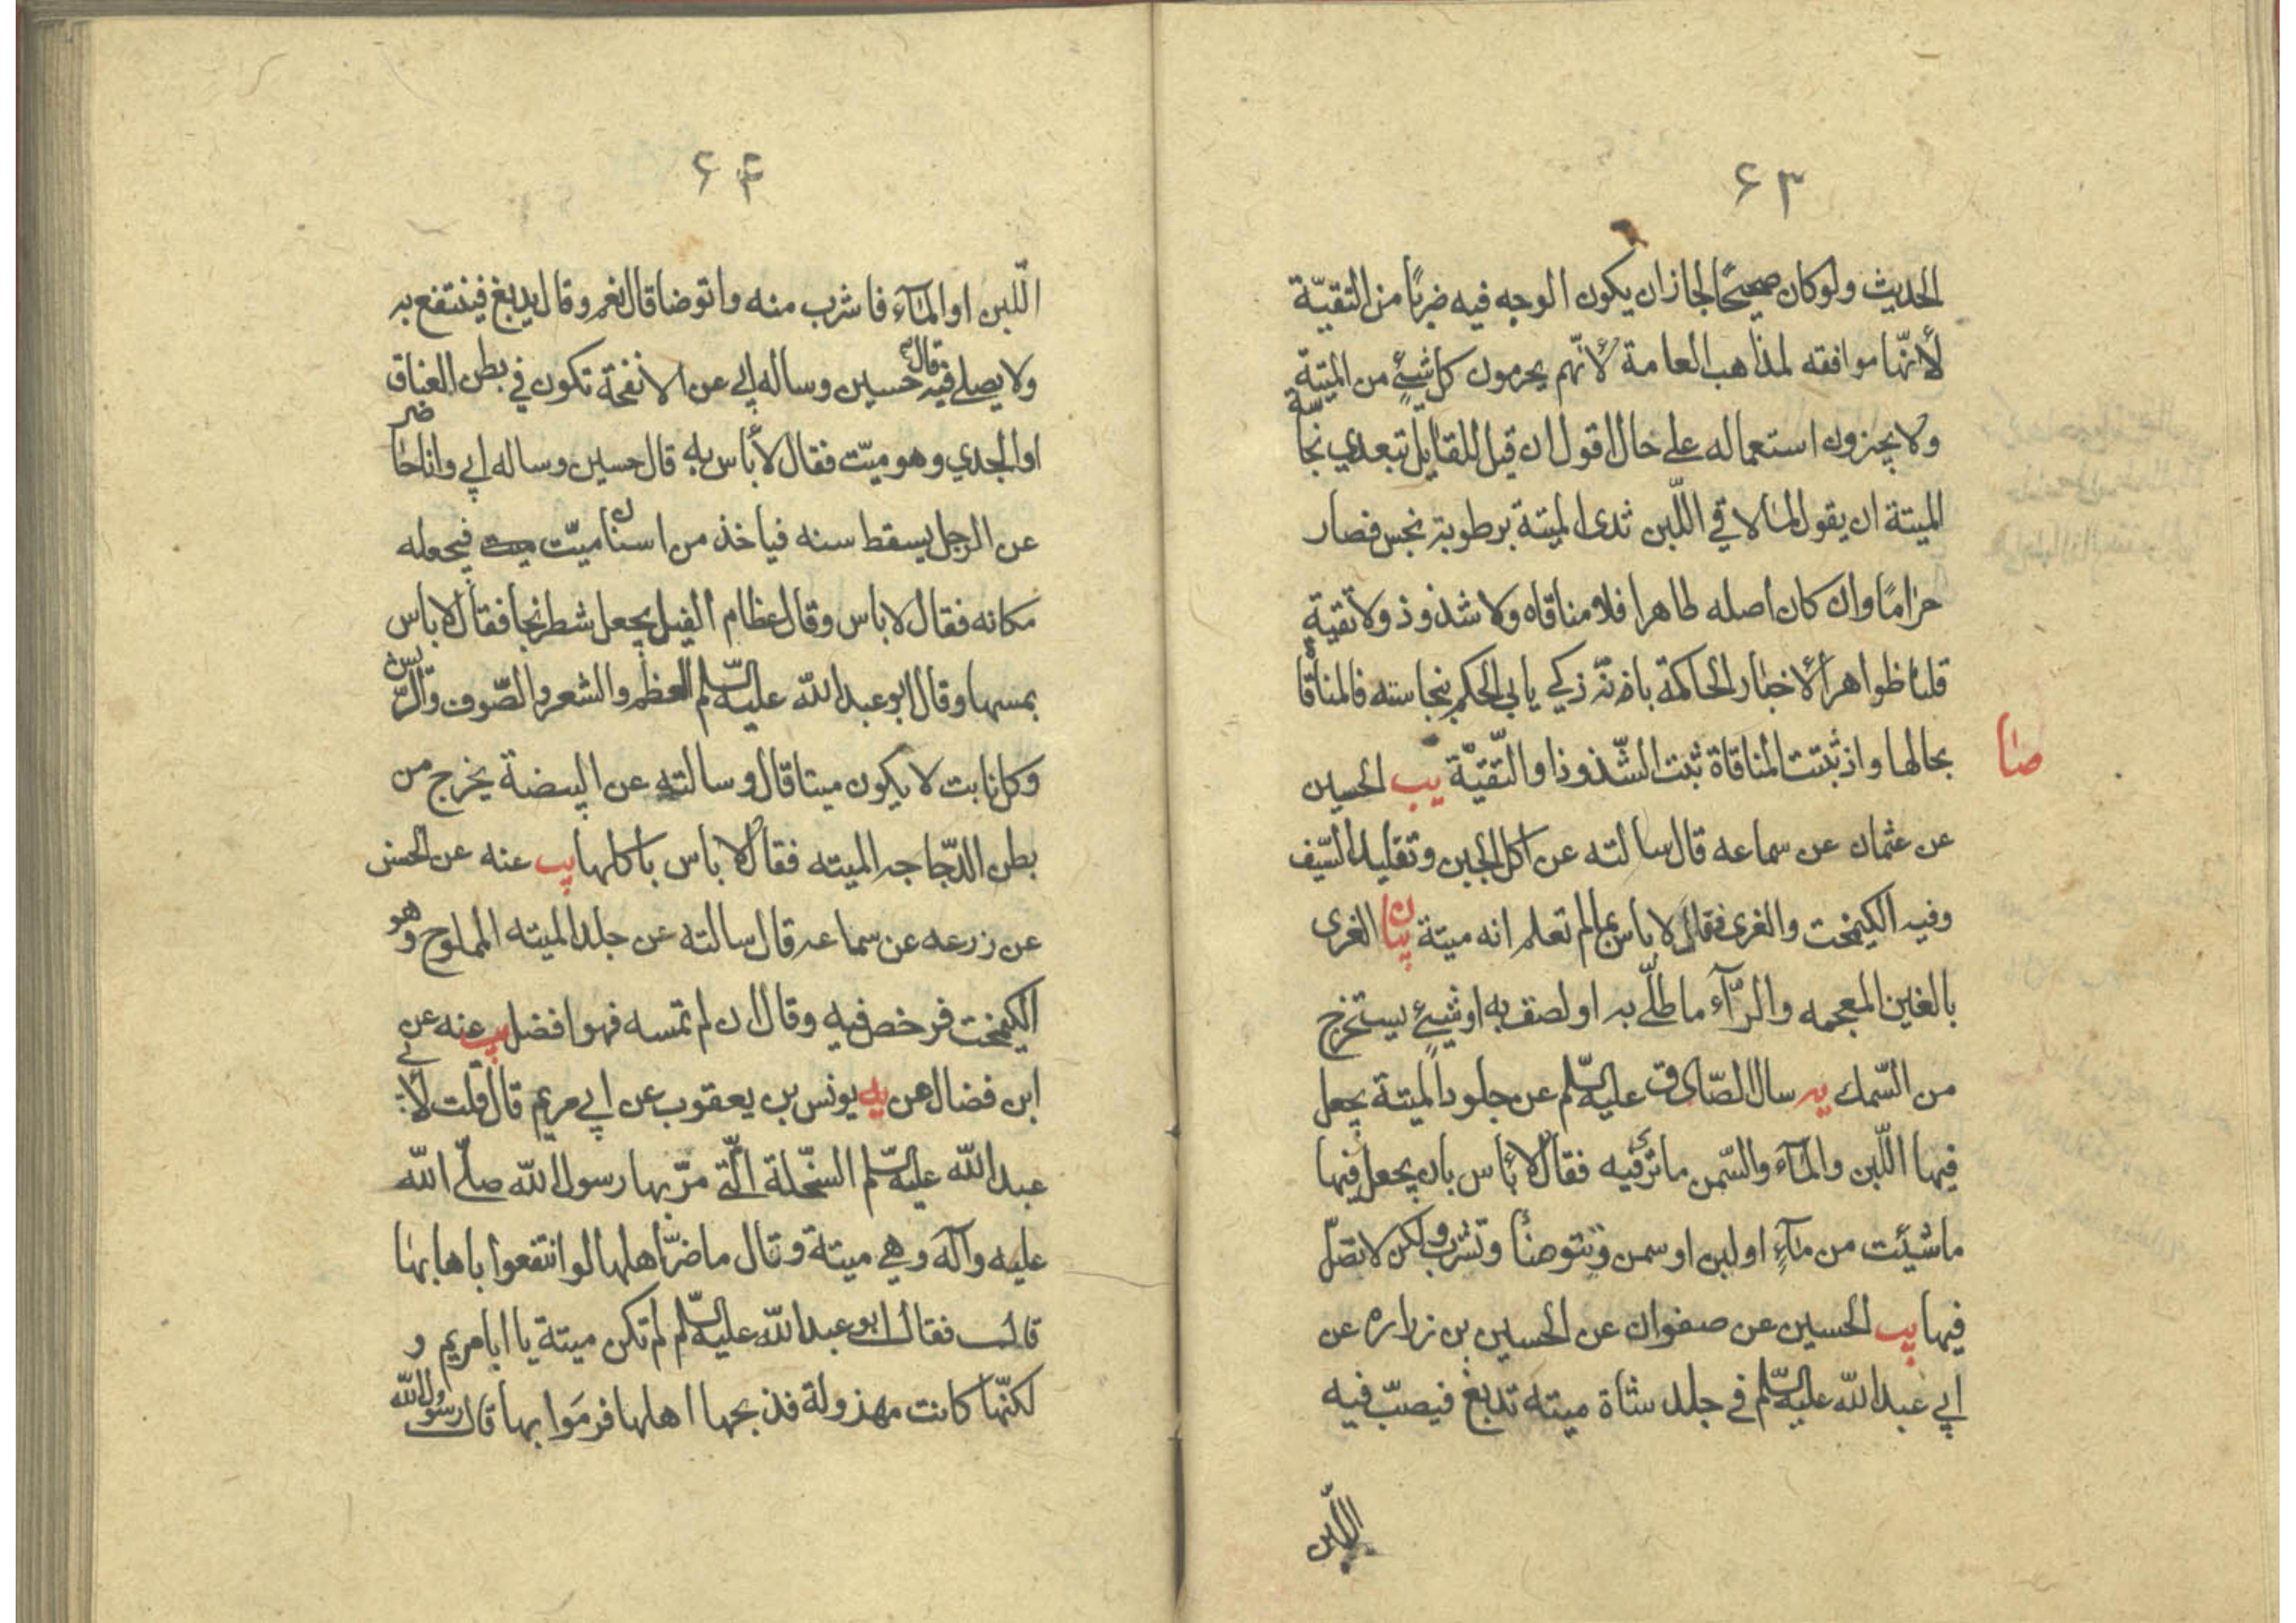 ۶۳
الحديث ولو كان صحيحًا لجاز ان يكون الوجه فيه ضربًا من التقيّة
لأنّها موافقه لمذاهب العامة لأنّهم يحرمون كل شيئٍ من الميتة
ولا يجيزون استعماله على حال اقول ان قيل للقايل بتعدي نجاسة
الميتة ان يقول لما لاقي اللّبن ثدى الميتة برطوبة نجس فصار
حرامًا وان كان اصله طاهرا فلا منافاه ولا شذوذ ولا تقية
قلنا ظواهر الأخبار الحاكمة بانه ذكي يابى الحكم بنجاسته فالمنافاة
بحالها واذ ثبتت المنافاة ثبت الشّذوذ او التّقيّة يب الحسين
صا
عن عثمان عن سماعه قال سالته عن اكل الجبن وتقليد السّيف
وفيه الكيمخت والغرى فقال لا باس بما لم تعلم انه ميتة بيان الغرى
بالغين المعجمه والرّآء ما طلّي به او لصق به او شيئٍ يستخرج
من السّمك يه سال الصّادق عليه السّلم عن جلود الميتة يجعل
فيها اللّبن والمآء والسّمن ما ترى فيه فقال لا بأس بان يجعل فيها
ما شيئت من مآءٍ او لبن او سمن وتتوضأ وتشرب ولكن لا تصلّ
فيها يب الحسين عن صفوان عن الحسين بن زراره عن
ابي عبدالله عليه السّلم في جلد شاة ميته تدبغ فيصبّ فيه
اللّبن
۶۴
اللّبن او المآء فاشرب منه واتوضا قال نعم وقال يدبغ فينتفع به
ولا يصلي فيه قال حسين وساله ابي عن الانفحة تكون في بطن العناق
او الجدي وهو ميّت فقال لا بأس به قال حسين وساله ابي وانا حاضر
عن الرجل يسقط سنه فياخذ من اسنان ميّت فيجعله
مكانه فقال لا باس وقال عظام الفيل يجعل شطرنجا فقال لا باس
بمسها وقال ابو عبدالله عليه السّلم العظم والشعر والصّوف والرّيش
وكل نابت لا يكون ميتا قال وسالته عن البيضة يخرج من
بطن الدّجاجه الميته فقال لا باس باكلها يب عنه عن الحسن
عن زرعه عن سماعه قال سالته عن جلد الميته المملوح وهو
الكيمخت فرخص فيه وقال ان لم تمسه فهو افضل يب عنه عن
ابن فضال عن يونس بن يعقوب عن ابي مريم قال قلت لابي
عبدالله عليه السّلم السّخلة الّتي مرّ بها رسول الله صلّى الله
عليه وآله وهي ميتة وقال ما ضرّ اهلها لو انتفعوا باهابها
قال فقال ابو عبدالله عليه السّلم لم تكن ميتة يا ابا مريم و
لكنّها كانت مهزولة فذبحها اهلها فرموا بها قال رسول الله